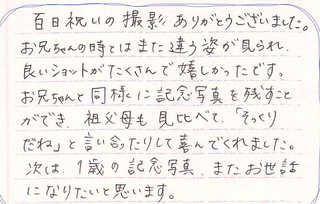 百日祝いの撮影、ありがとうございました。
お兄ちゃんの時とはまた違う姿が見られ、
良いショットがたくさんで嬉しかったです。
お兄ちゃんと同様に記念写真を残すこと
ができ、祖父母も見比べて、「そっくり
だね」と言い合ったりして喜んでくれました。
次は、1歳の記念写真、またお世話
になりたいと思います。